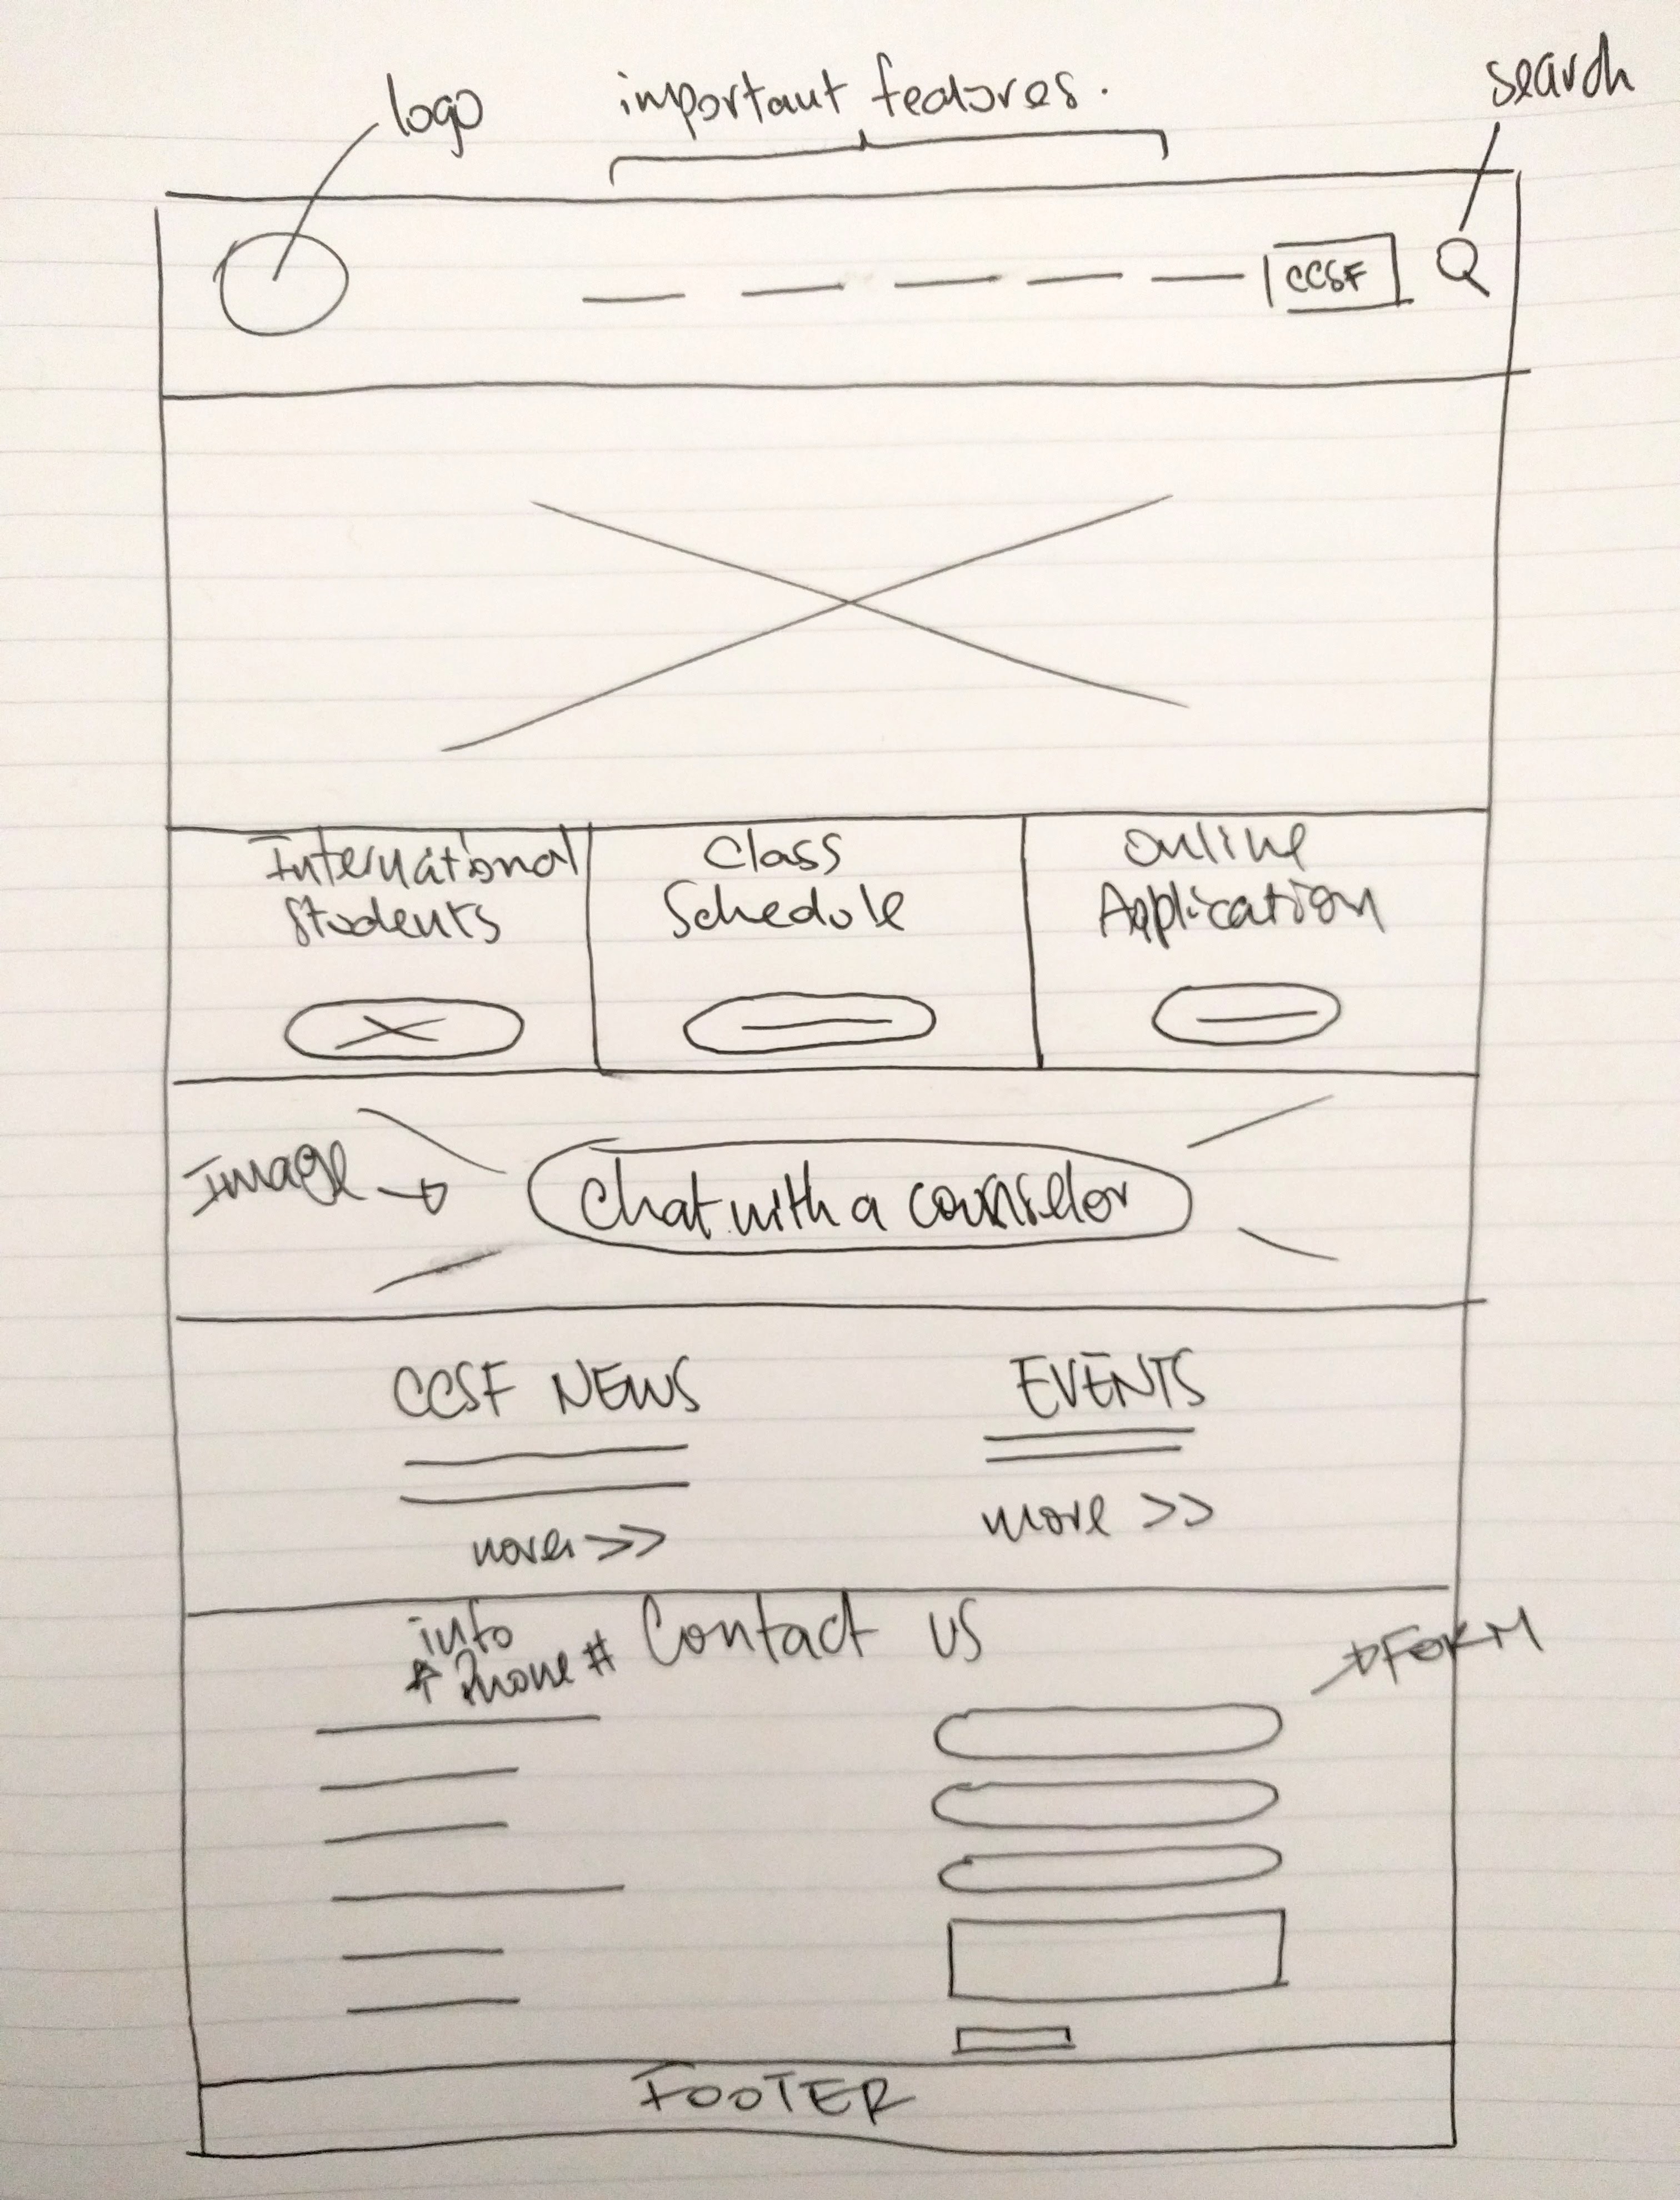 logo
important features.
search
CCSF
International
Students
Class
Schedule
Online
Application
Image
Chat with a counselor
CCSF NEWS
EVENTS
more >>
more >>
info
Phone #
Contact us
FORM
FOOTER